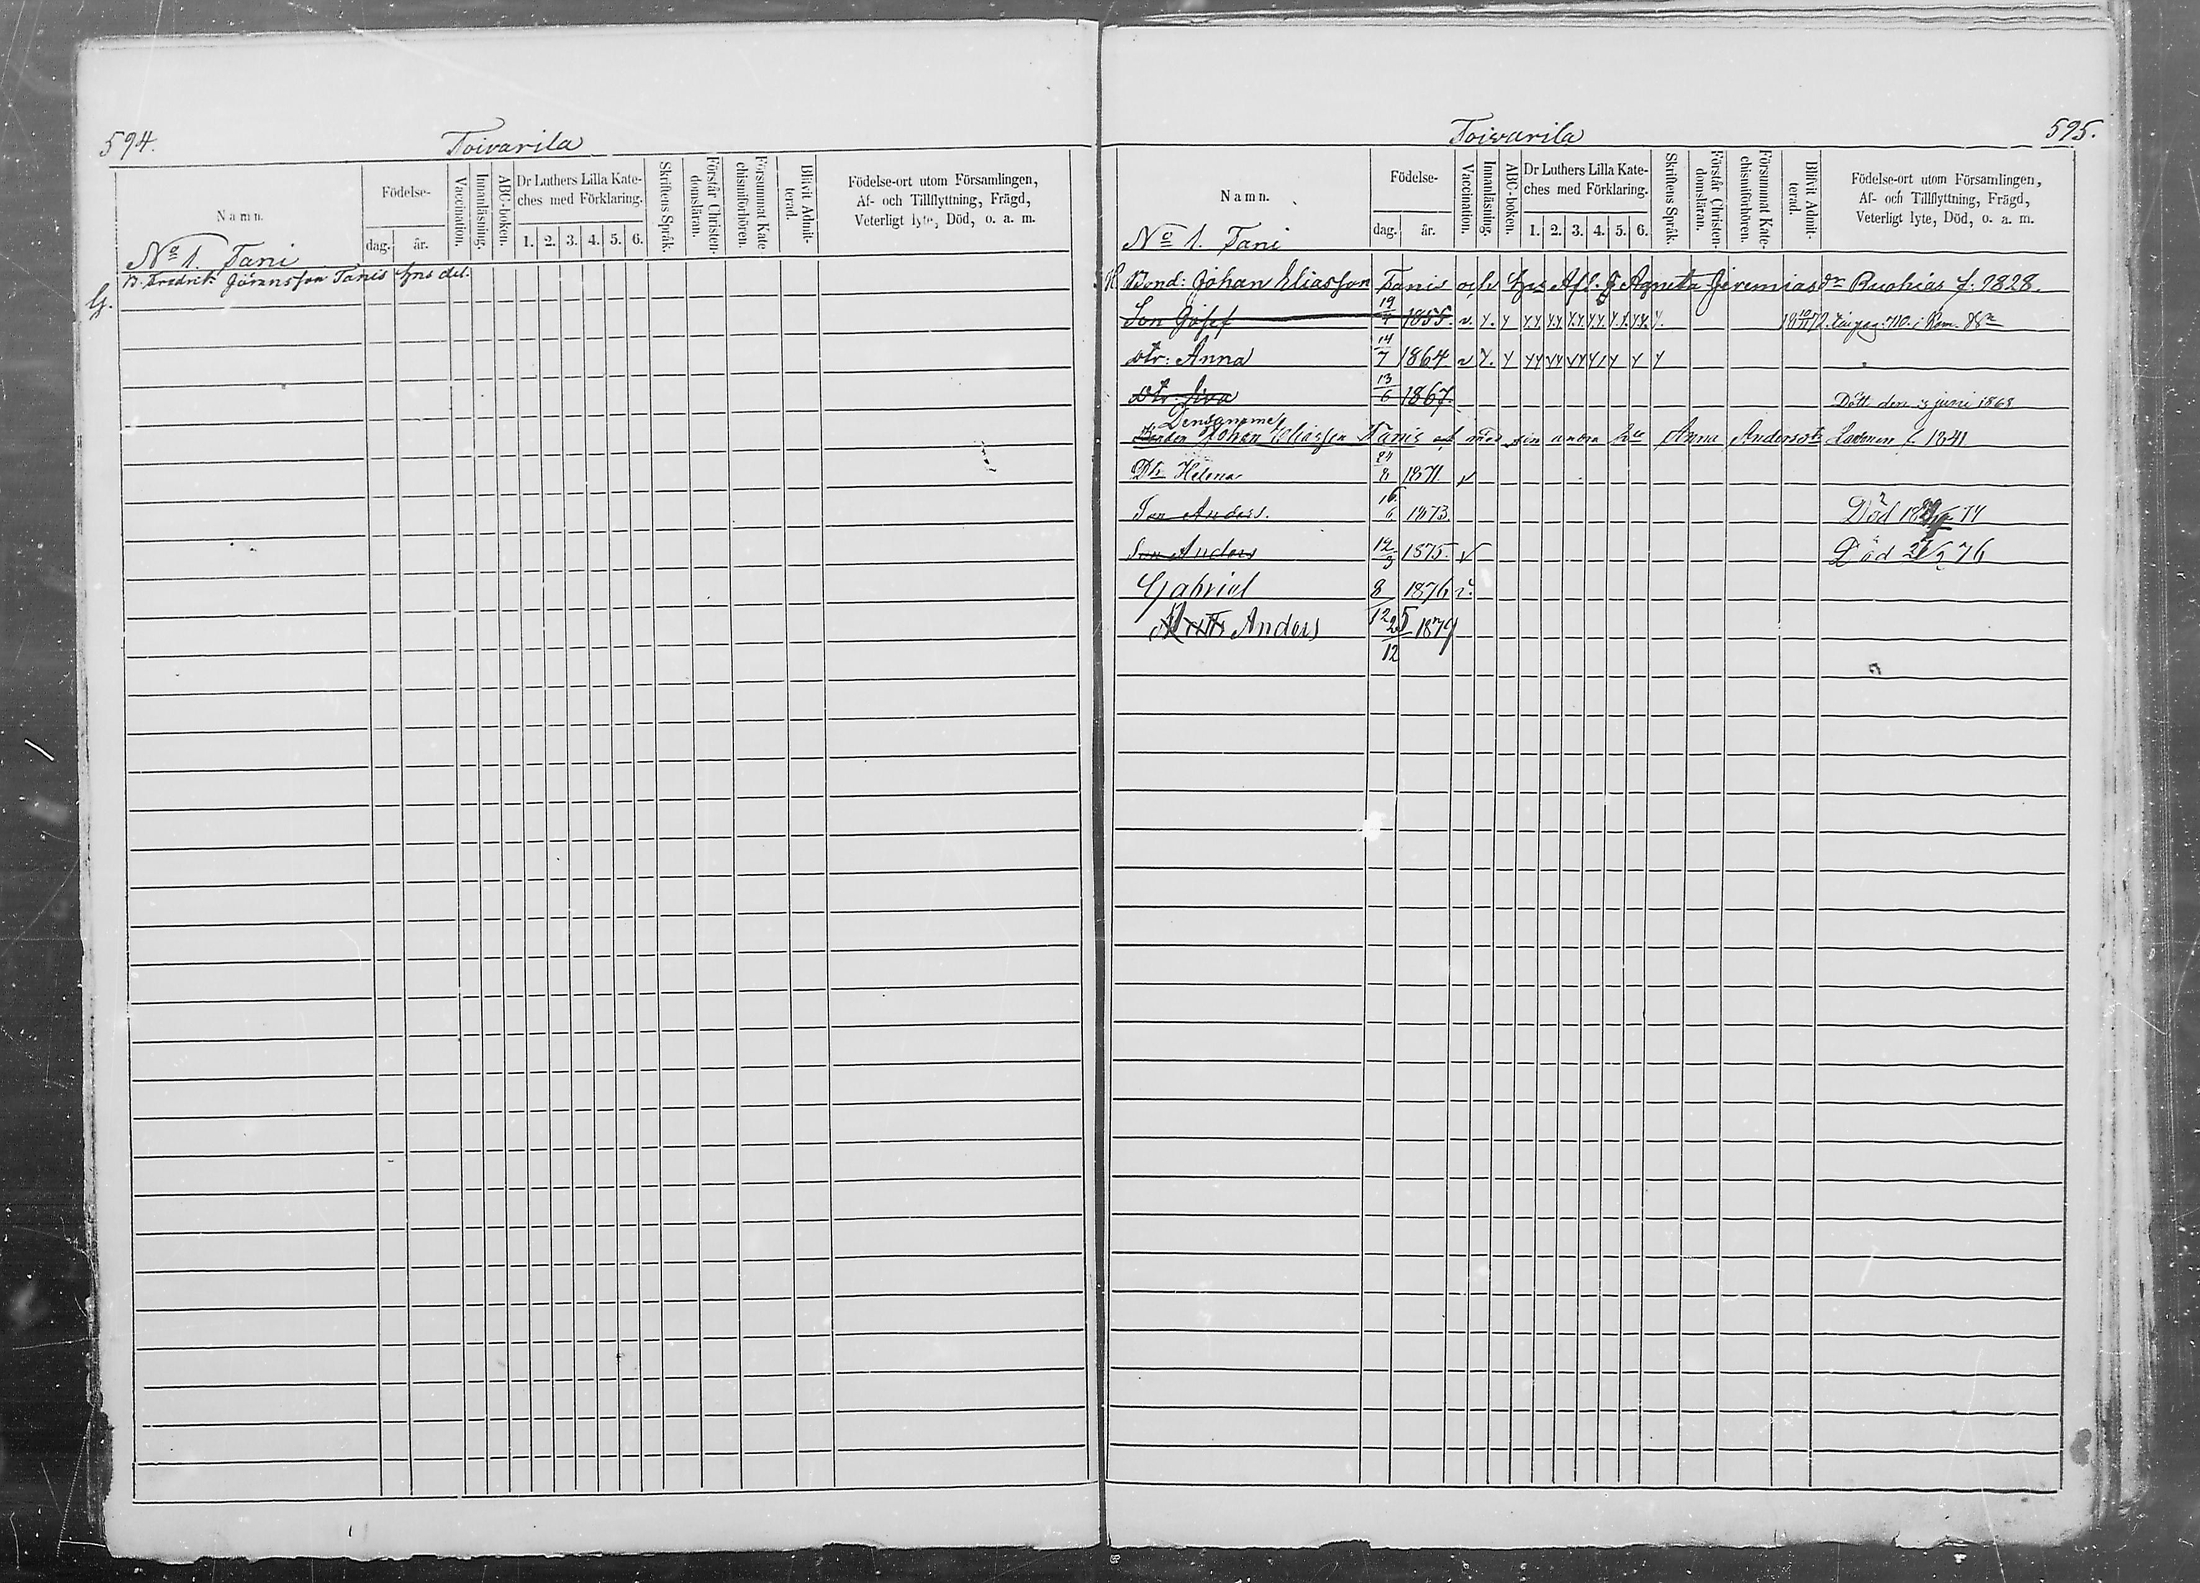 594.
Toivarila
Namn.
Födelse-
dag.
år.
Vaccination.
Innanläsning.
ABC-boken.
Dr Luthers Lilla Kate-
ches med Förklaring.
1. 2. 3. 4. 5. 6.
Skriftens Språk.
Förstår Christen-
domsläran.
Försummat Kate-
chismiförhören.
Blifvit Admit-
terad.
Födelse-ort utom Församlingen,
Af- och Tillflyttning, Frägd,
Veterligt lyte, Död, o. a. m.
No 1. Tani
G. B. Fredrik Göransson Tanis hns del.
Toivarila
595.
Namn.
Födelse-
dag.
år.
Vaccination.
Innanläsning.
ABC-boken.
Dr Luthers Lilla Kate-
ches med Förklaring.
1. 2. 3. 4. 5. 6.
Skriftens Språk.
Förstår Christen-
domsläran.
Försummat Kate-
chismiförhören.
Blifvit Admit-
terad.
Födelse-ort utom Församlingen,
Af- och Tillflyttning, Frägd,
Veterligt lyte, Död, o. a. m.
No 1. Tani
Bond: Johan Eliasson Tanis och Agneta Jeremiasdr Ruohias f. 1828.
Son Josef 19/4 1855. v. y. y
dtr: Anna 14/7 1864 v y. y
dtr: Eva 13/6 1867. Dött den 3 juni 1868
Densamme
Bonden Johan Eliasson Tanis med sin andra hu Anna Andersdtr f. 1841
Dtr Helena 24/8 1871. v
Son Anders. 16/6 1873. Död 74
Son Anders 12/3 1875. v Död 27/2 76
Gabriel 8/12 1876 v.
Matts Anders 25/12 1879